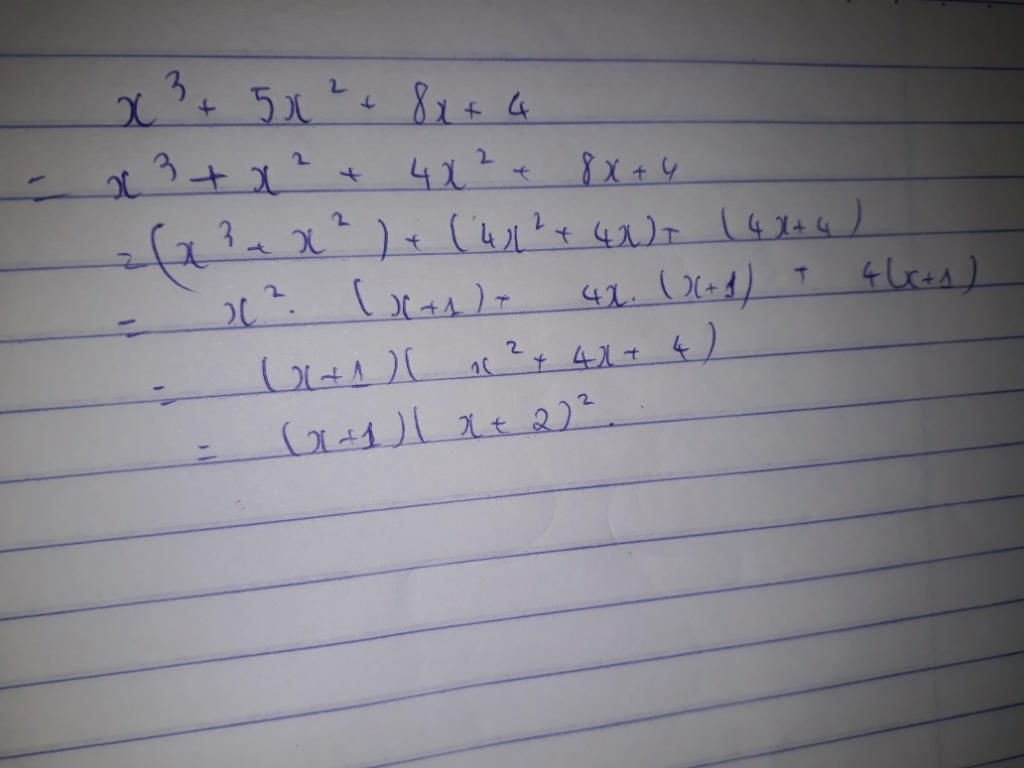 x³ + 5x² + 8x + 4
= x³ + x² + 4x² + 8x + 4
= (x³ + x²) + (4x² + 4x) + (4x + 4)
= x² . (x+1) + 4x . (x+1) + 4(x+1)
= (x+1)(x² + 4x + 4)
= (x+1)(x + 2)².